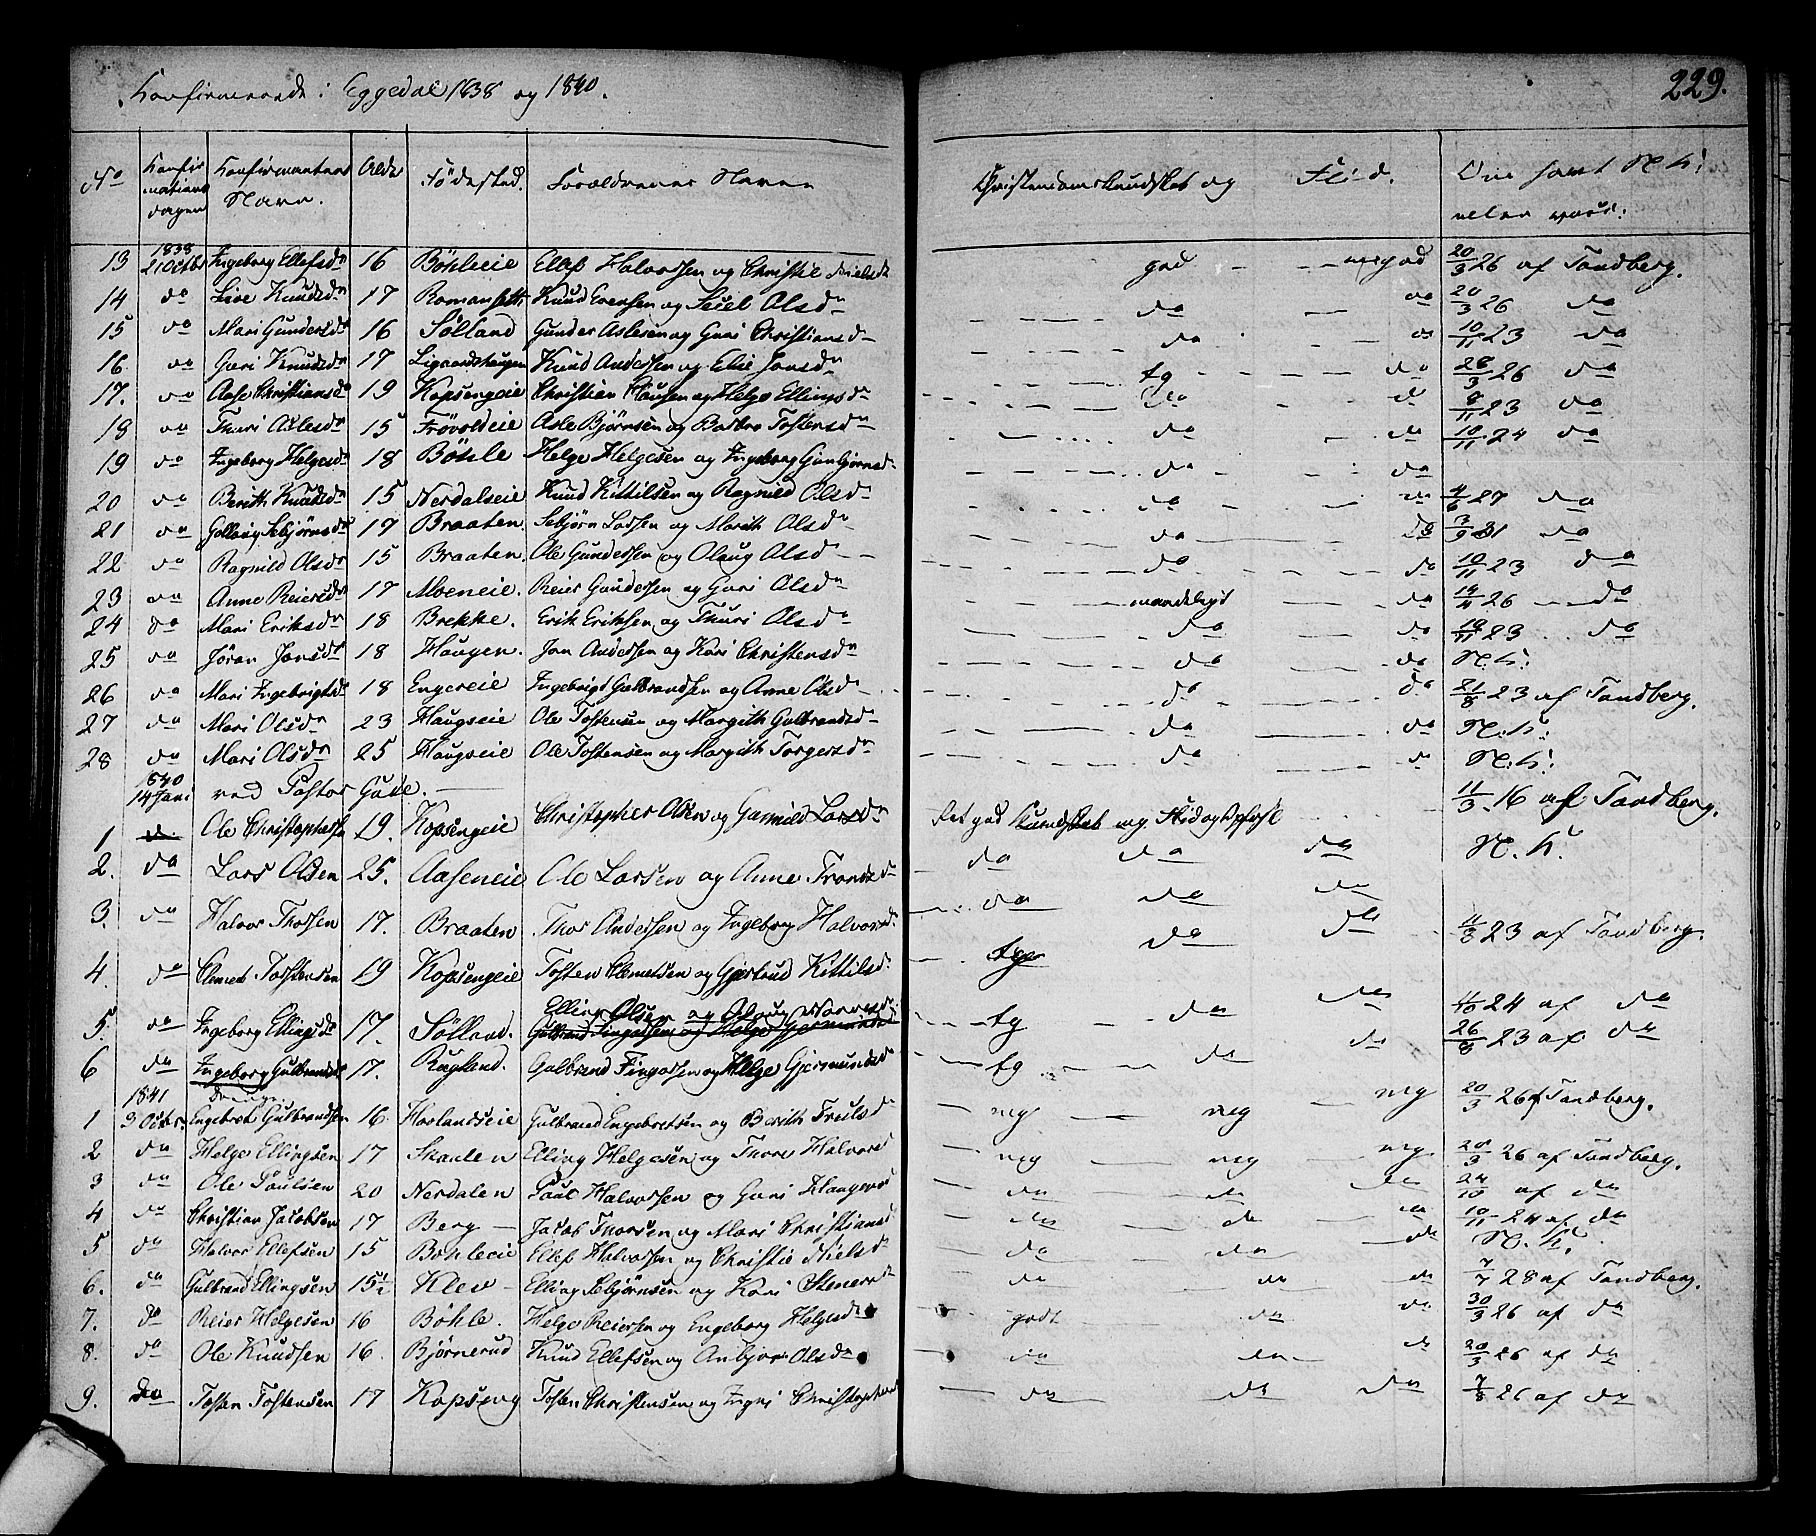 Konfirmerede i Eggedal 1838 og 1840.
229.
No Konfirmations dagen Konfirmantens Navn. Alder Födested. Forældrenes Navne Christendomskundskab og Flid. Om havt N. k: eller vacc:
13 1838 21 Octbr Ingeborg Ellefsdr 16 Böhleeie Ellef Halvorsen og Christie Nielsdr god - - megod 20/3 26 af Tandberg.
14 do Live Knudsdr 17 Knud Evensen og Olsdr do do 20/3 26 do
15 do Mari Gundersdr 16 Sölland Gunder Aslesen og Guri Christiansd do do 10/11 23 do
16. do Guri Knudsdr 17 Knud Andersen og Jonsdr tg do 28/3 26 do
17. do Aase Christiansd 19 Kopsengeie Christian og Helge Ellingsdr do do 8/11 23 do
18 do Thuri Aslesdr 15 Frövoldeie Asle Björnsen og Barbro Tostensdr do do 10/11 24 do
19 do Ingeborg Helgesdr 18 Böhle Helge Helgesen og Ingeborg do do
20 do Berith Knudsdr 15 Nerdalseie Knud Kittilsen og Ragnild Olsdr do do 4/6 27 do
21 do Sebjörnsdr 17 Braaten Sebjörn Larsen og Marith Olsdr do do 3/9 31 do
22 do Ragnild Olsdr 15 Braaten Ole Gundersen og Olaug Olsd do do 10/11 23 do
23 do Anne Reiersdr 17 Moeneie. Reier Gundersen og Guri Olsdr do 14/4 26 do
24 do Mari Eriksdr 18 Brekke. Erik Eriksen og Thuri Olsdr do do 10/11 23 do
25 do Jöran Jonsdr 18 Haugen. Jon Andersen og Kari Christensdr do do N. k:
26 do Mari Ingebrigtsd 18 Engereie Ingebrigt Gulbrandsen og Anne Olsd do do 21/8 23 af Tandberg.
27 do Mari Olsdr 23 Haugseie Ole Tostensen og Margith Gulbrandsd do do N. k:
28 do Mari Olsdr 25 Haugseie Ole Tostensen og Margith Torgersdr do do N: k:
1840 14 Juni ved Pastor
1 Ole Christophersen 19. Kopsengeie Christopher Olsen og Gunnild Larsdr Ret god Kundskab og Flid og 11/3 16 af Tandberg.
2. do Lars Olsen 25. Aaseneie Ole Larsen og Anne Trondsdr do do do N. k:
3. do Halvor Thorsen 17. Braaten Thor Andersen og Ingeborg Halvorsd do do do 11/8 23 af Tandberg.
4. do Clemet Torstensen 19 Kopsengeie Tosten Clemetsen og Gjertrud Kittilsd. tg do do 11/10 24 af do
5. do Ingeborg Ellingsdr 17. Sölland. Elling Olsen og Olaug tg do do 26/8 23 af do
6 do Ingeborg Gulbrandsd 17. Rugland. Gulbrand Fingarsen og Helge Gjermundsd tg do do
1841
1 3 Octbr Engebret Gulbrandsen 16. Havlandseie Gulbrand Engebretsen og Berith Truelsd mg mg mg 20/3 26 af Tandberg.
2 do Helge Ellingsen 17 Skaalen Elling Helgesen og Thore Halvorsd mg mg mg 20/3 26 af Tandberg.
3 do Ole Paulsen 20 Nerdalen Paul Halvorsen og Guri do do do 24/10 af do
4 do Christian Jacobsen 17 Berg Jacob Thorsen og Mari Christiansd do do do 10/11 24 af do
5 do Halvor Ellefsen 15 Bohleeie Ellef Halvorsen og Christie Nielsd do do do N. k.
6. do Gulbrand Ellingsen 15½ Klev Elling Sebjörnsen og Kari Steners do do do 7/7 28 af Tandberg.
7. do Reier Helgesen 16 Böhle. Helge Reiersen og Engeborg Helgesd godt do do 30/3 26 af do
8. do Ole Knudsen 16. Björnerud Knud Ellefsen og Anbjor Olsdr do do do 20/3 26 af do
9. do Tosten Tostensen 17 Kopseng Tosten Christensen og Ingri Christophersd do do do 7/8 26 af do